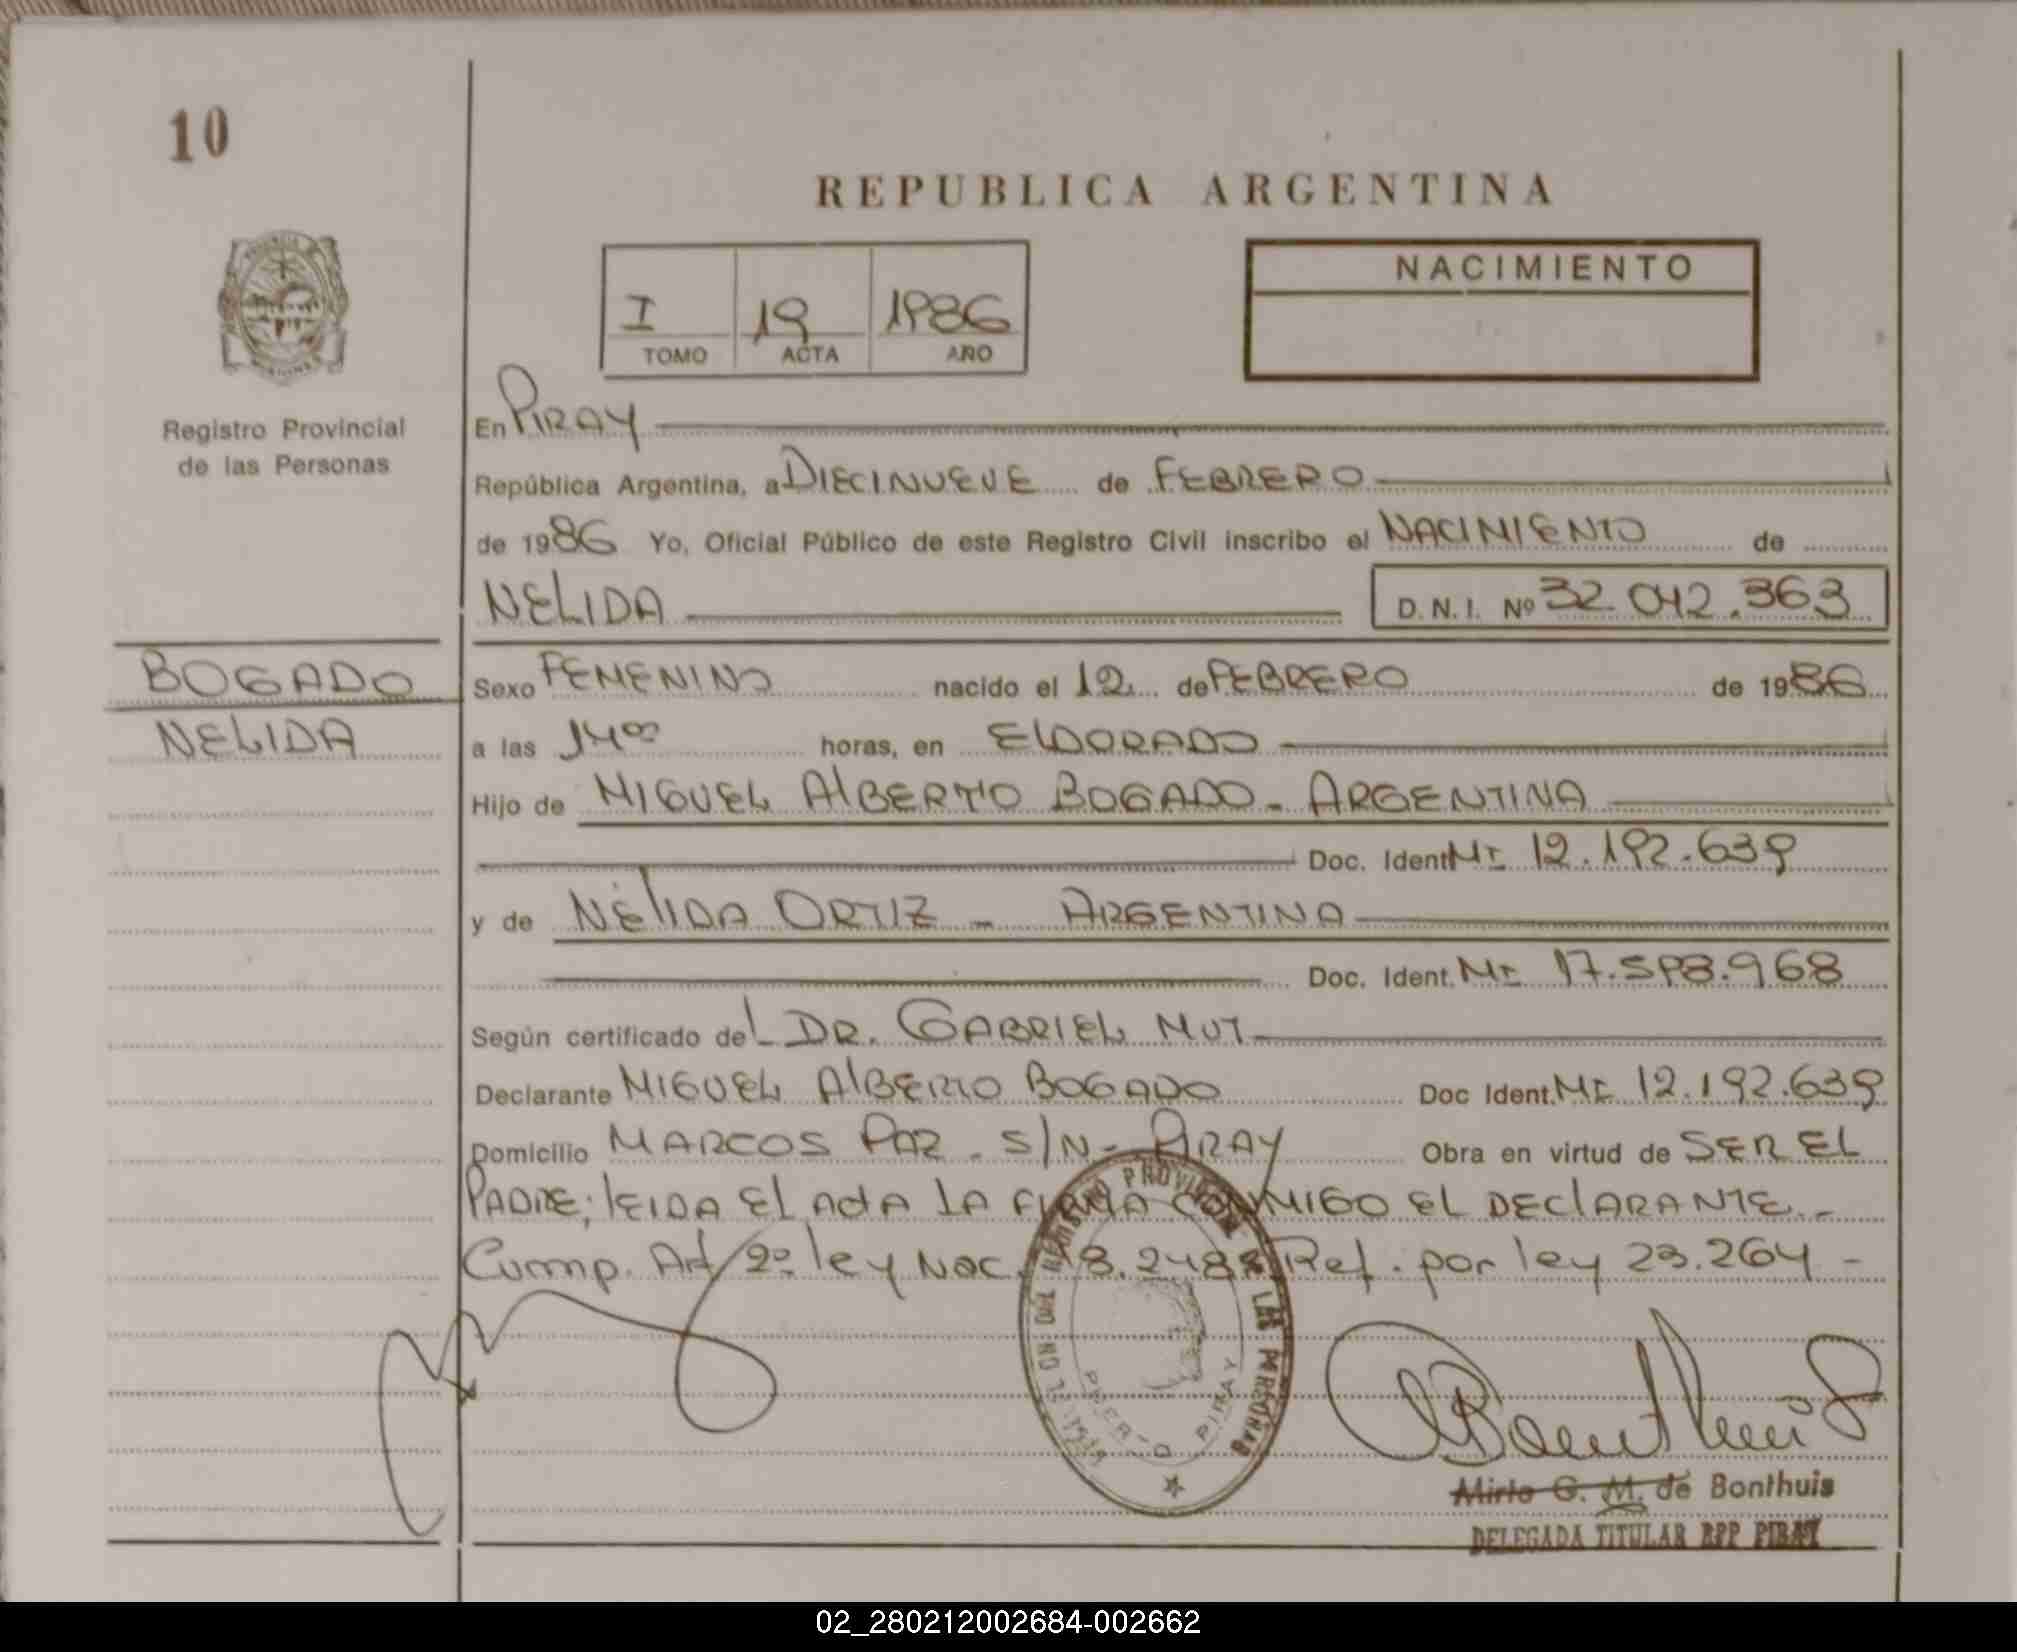 10
REPUBLICA ARGENTINA
I 19 1986
TOMO ACTA AÑO
NACIMIENTO
Registro Provincial
de las Personas
En PIRAY
República Argentina, a DIECINUEVE de FEBRERO
de 1986 Yo, Oficial Público de este Registro Civil inscribo el NACIMIENTO de
NELIDA D.N.I. Nº 32.042.363
BOGADO
NELIDA
Sexo FEMENINO nacido el 12 de FEBRERO de 1986
a las 14⁰⁰ horas, en ELDORADO
Hijo de MIGUEL ALBERTO BOGADO - ARGENTINA
Doc. Ident. MI 12.192.639
y de NÉLIDA ORTIZ - ARGENTINA
Doc. Ident. MI 17.598.968
Según certificado del DR. GABRIEL MUT
Declarante MIGUEL ALBERTO BOGADO Doc Ident. MI 12.192.639
Domicilio MARCOS PAZ - S/N - PIRAY Obra en virtud de SER EL
PADRE; LEIDA EL ACTA LA FIRMA CONMIGO EL DECLARANTE.-
Cump. Art 2º ley Nac. 18.248 Ref. por ley 23.264 -
PROVINCIAL DE LAS PERSONAS
PUERTO PIRAY
Mirta G. M. de Bonthuis
DELEGADA TITULAR RPP PIRAY
02_280212002684-002662